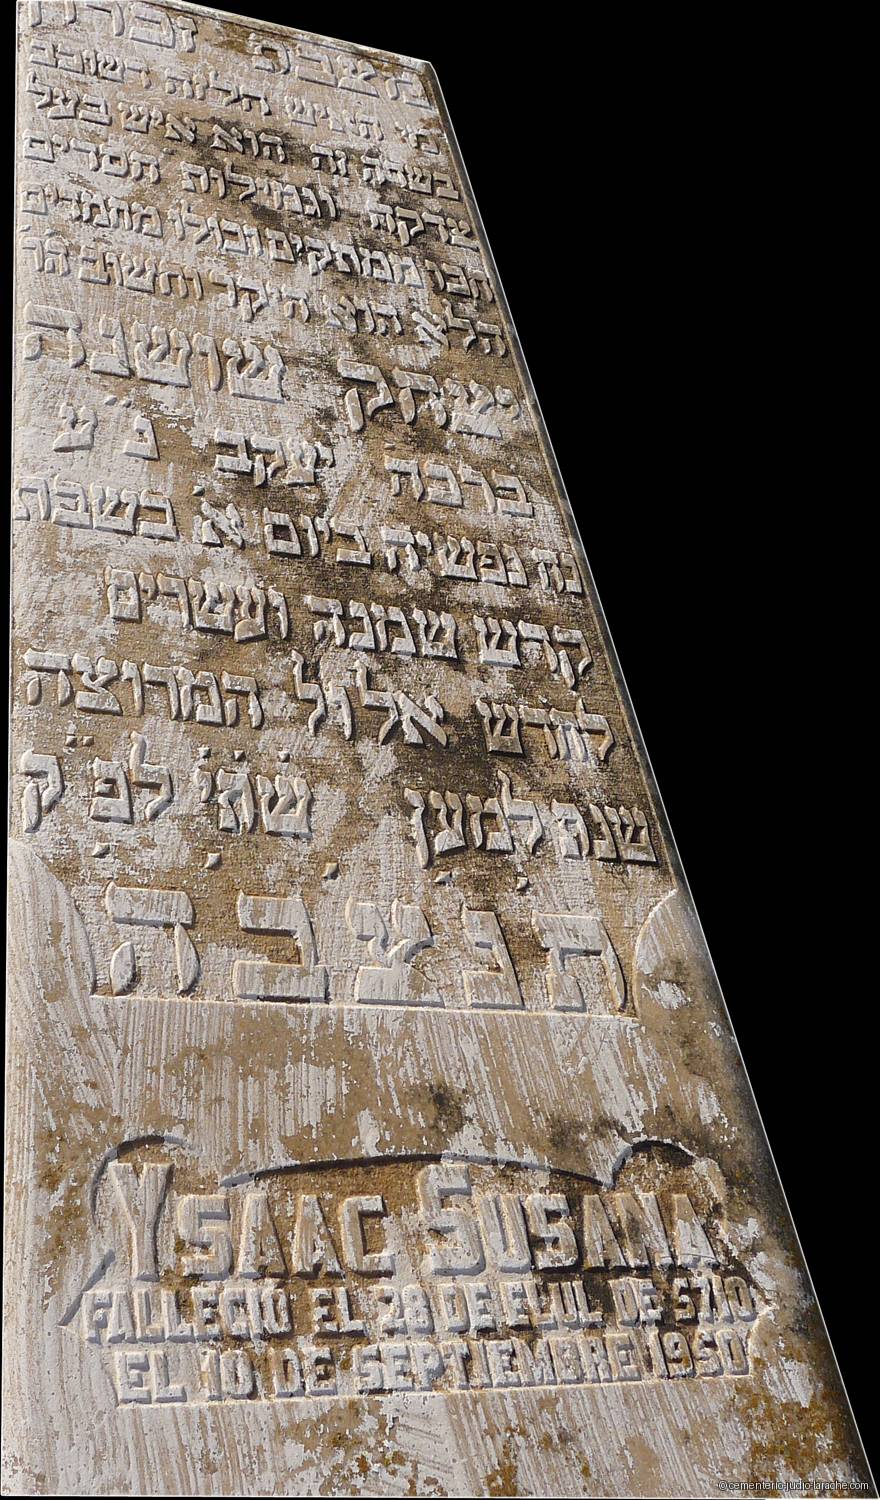 מצבת זכרון
האיש הלזה השוכב
בשכה זה הוא איש בעל
צדקה וגמילות חסדים
חכו ממתקים וכולו מחמדים
הלא הוא היקר וחשוב הר׳
יצחק שושנה
ברכה יעקב נ״ע
נח נפשיה ביום א׳ בשבת
קדש שמנה ועשרים
לחדש אלול המרוצה
שנת למען שׁתׄיׄ לפ״ק
ת׳נ׳צ׳ב׳ה׳
YSAAC SUSANA
FALLECIO EL 28 DE ELUL DE 5710
EL 10 DE SEPTIEMBRE 1950
© cementerio-judio-larache.com